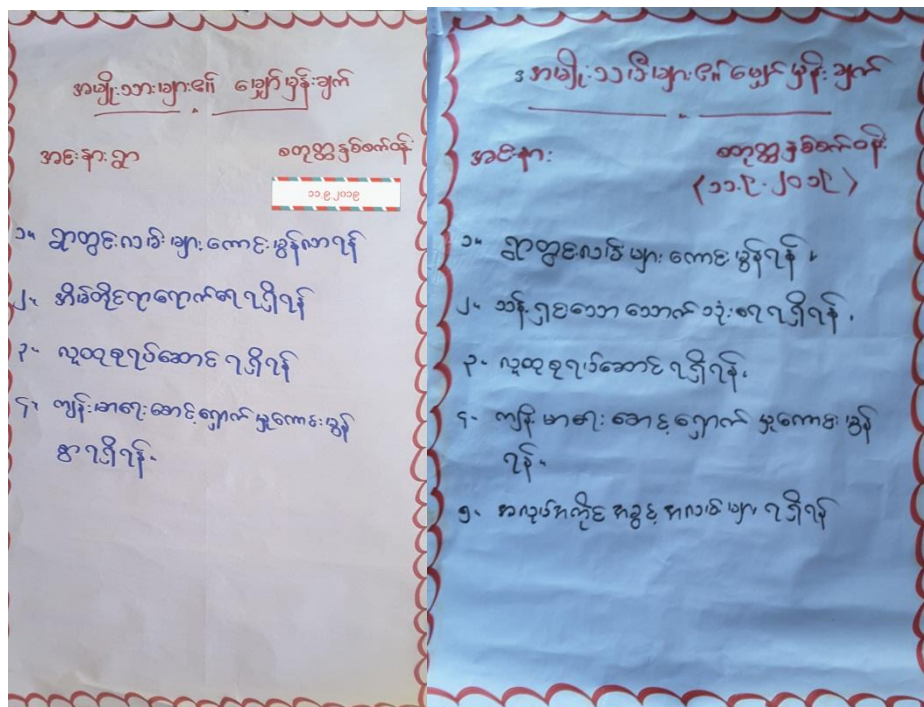 အမျိုးသားများ၏ မျှော်မှန်းချက်
အငူးနားရွာ
စတုတ္ထနှစ်စက်ဝန်း
၁၁.၉.၂၀၁၉
၁။ ရွာတွင်းလမ်းများကောင်းမွန်လာရန်
၂။ အိမ်တိုင်ရာရောက်ရေရရှိရန်
၃။ လူထုစုရပ်ဆောင်ရရှိရန်
၄။ ကျန်းမာရေးစောင့်ရှောက်မှုကောင်းမွန်
စွာရရှိရန်။
အမျိုးသမီးများ၏ မျှော်မှန်းချက်
စတုတ္ထနှစ်စက်ဝန်း
(၁၁.၉.၂၀၁၉)
၁။ ရွာတွင်းလမ်းများကောင်းမွန်ရန်။
၂။ သန့်ရှင်းသောသောက်သုံးရေရရှိရန်။
၃။ လူထုစုရပ်ဆောင်ရရှိရန်။
၄။ ကျန်းမာရေးစောင့်ရှောက်မှုကောင်းမွန်
ရန်။
၅။ အလုပ်အကိုင်အခွင့်အလမ်းများရရှိရန်